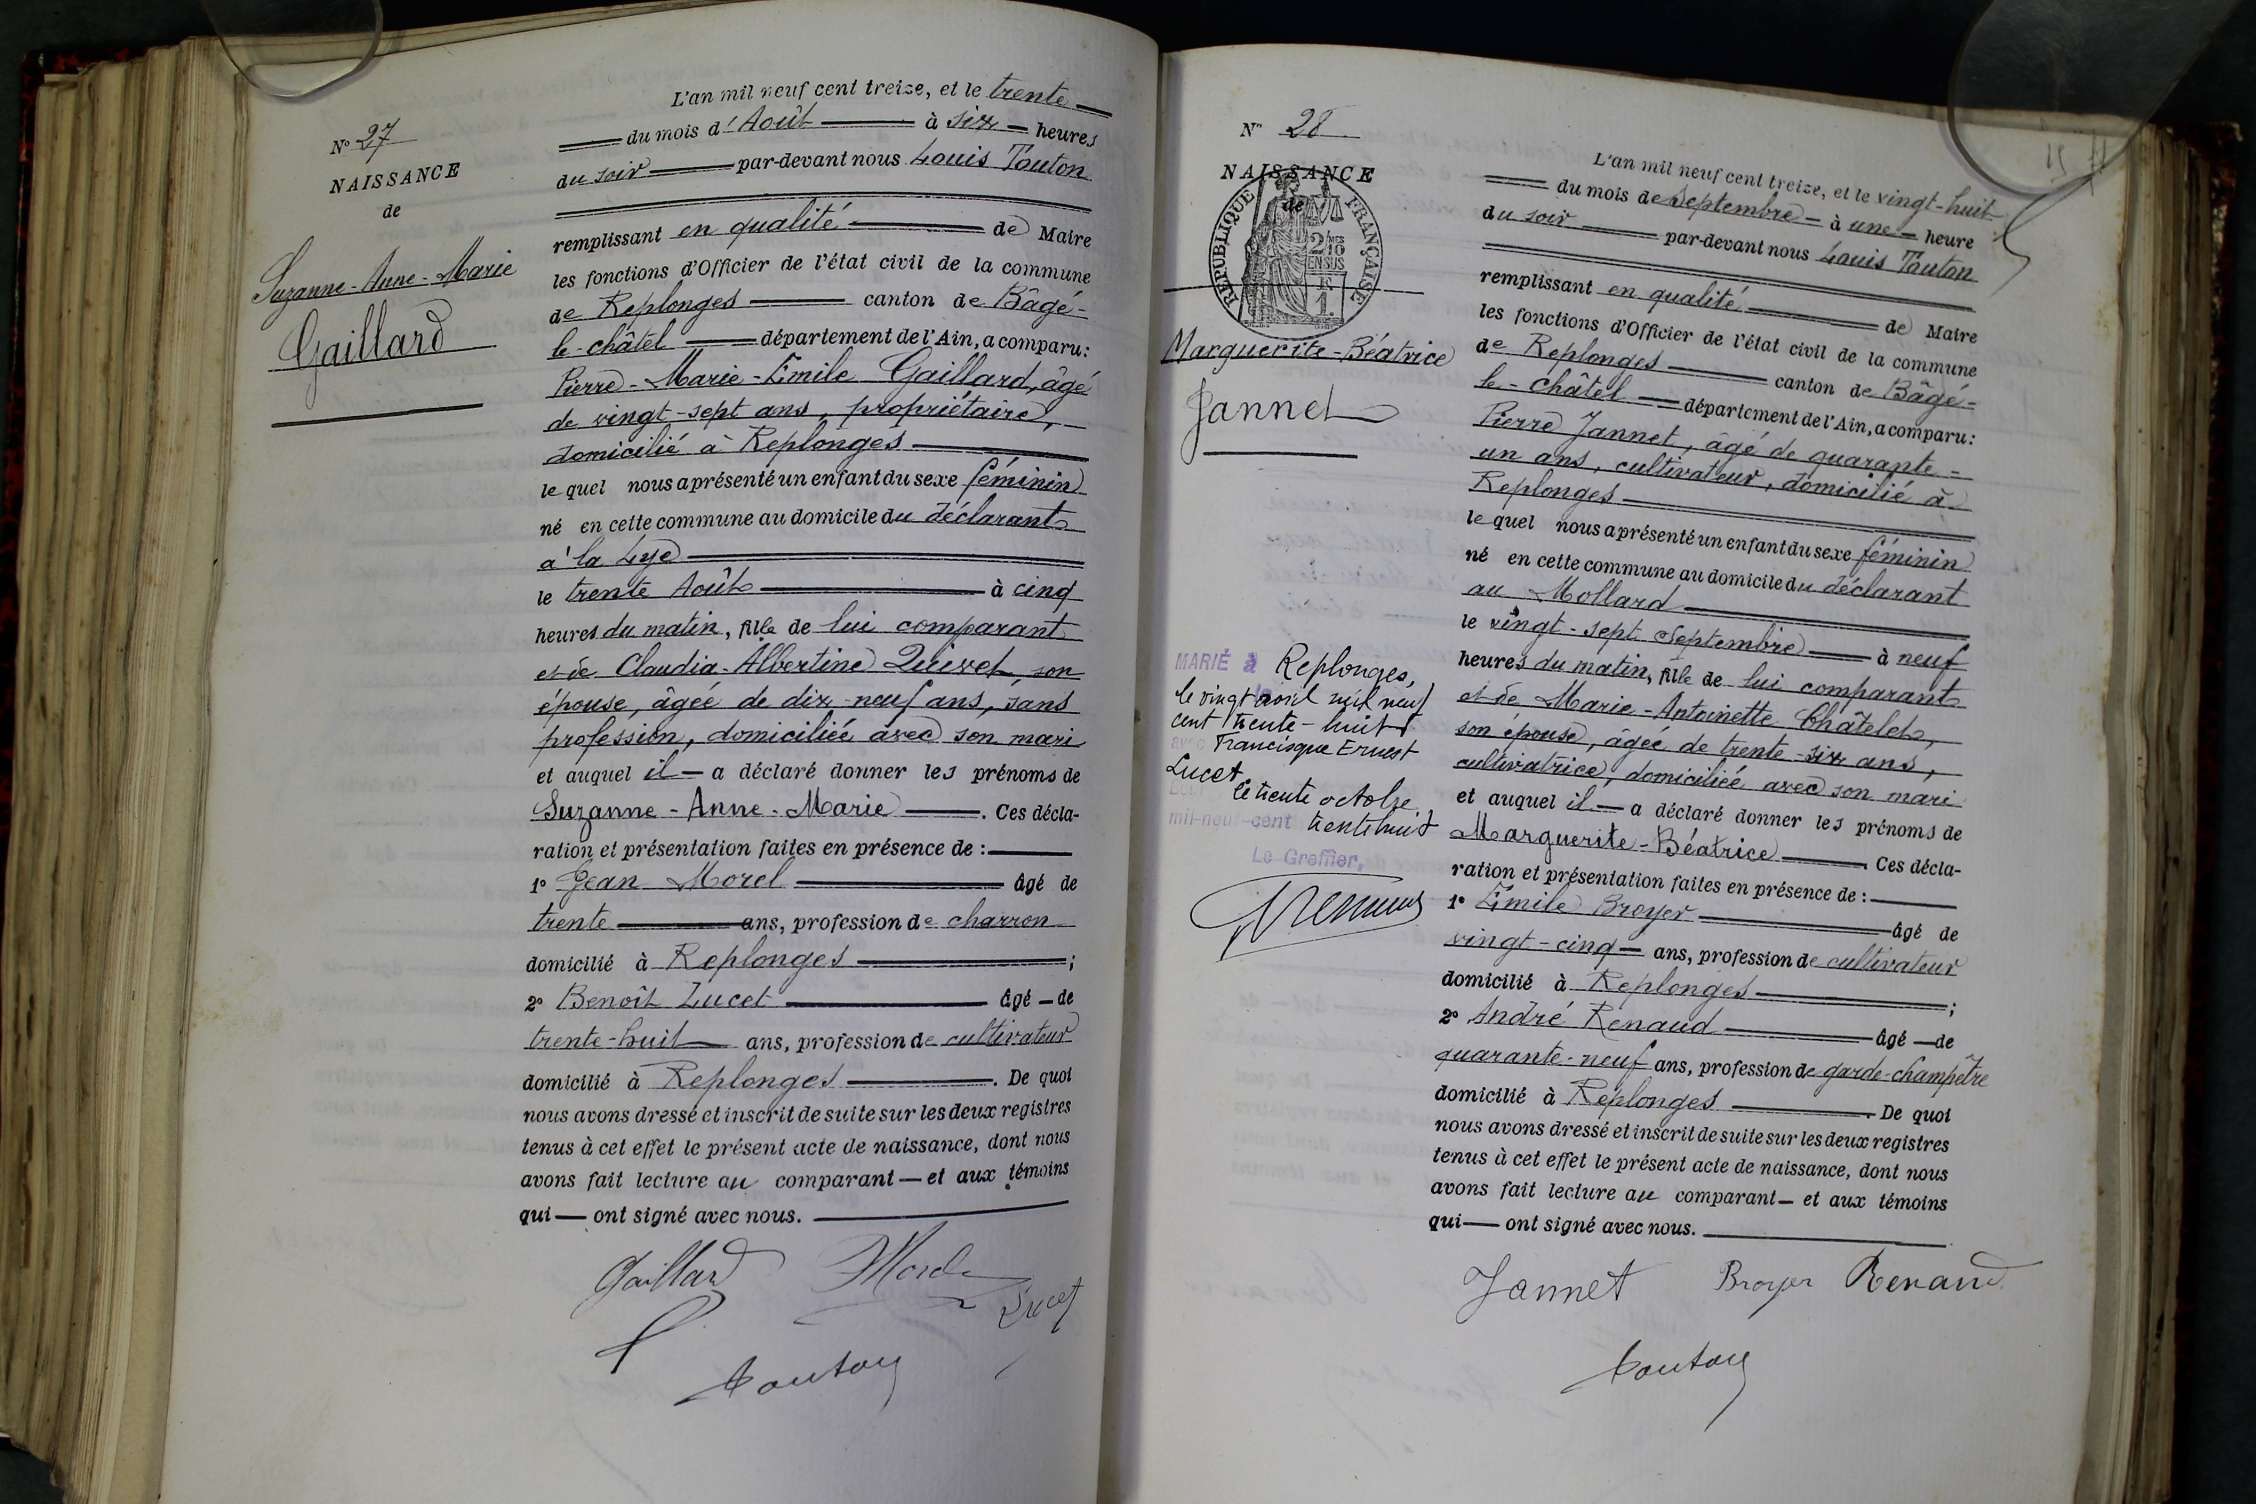 N° 27
NAISSANCE
de
Suzanne-Anne-Marie
Gaillard
L'an mil neuf cent treize, et le trente
du mois d'Août à six heures
du soir par-devant nous Louis Touton
remplissant en qualité de Maire
les fonctions d'Officier de l'état civil de la commune
de Replonges canton de Bâgé-
le-châtel département de l'Ain, a comparu:
Pierre-Marie-Emile Gaillard, âgé
de vingt-sept ans, propriétaire,
domicilié à Replonges
lequel nous a présenté un enfant du sexe féminin
né en cette commune au domicile du déclarant
à la Lye
le trente Août à cinq
heures du matin, fille de lui comparant
et de Claudia-Albertine Quivet, son
épouse, âgée de dix-neuf ans, sans
profession, domiciliée avec son mari
et auquel il a déclaré donner les prénoms de
Suzanne-Anne-Marie. Ces décla-
ration et présentation faites en présence de :
1° Jean Morel âgé de
trente ans, profession de charron
domicilié à Replonges ;
2° Benoît Lucet âgé de
trente-huit ans, profession de cultivateur
domicilié à Replonges. De quoi
nous avons dressé et inscrit de suite sur les deux registres
tenus à cet effet le présent acte de naissance, dont nous
avons fait lecture au comparant et aux témoins
qui ont signé avec nous.
Gaillard Morel
Lucet
Touton
N° 28
NAISSANCE
de
REPUBLIQUE FRANÇAISE
2/10
EN SUS
1F.
Marguerite-Béatrice
Jannet
MARIÉ à Replonges,
le vingt avril mil neuf
cent trente-huit
avec Francisque Ernest
Lucet
le trente octobre
mil-neuf-cent trentehuit
Le Greffier,
L'an mil neuf cent treize, et le vingt-huit
du mois de Septembre à une heure
du soir par-devant nous Louis Touton
remplissant en qualité de Maire
les fonctions d'Officier de l'état civil de la commune
de Replonges canton de Bâgé-
le-châtel département de l'Ain, a comparu:
Pierre Jannet, âgé de quarante-
un ans, cultivateur, domicilié à
Replonges
lequel nous a présenté un enfant du sexe féminin
né en cette commune au domicile du déclarant
au Mollard
le vingt-sept Septembre à neuf
heures du matin, fille de lui comparant
et de Marie-Antoinette Châtelet,
son épouse, âgée de trente-six ans,
cultivatrice, domiciliée avec son mari
et auquel il a déclaré donner les prénoms de
Marguerite-Béatrice. Ces décla-
ration et présentation faites en présence de :
1° Emile Broyer âgé de
vingt-cinq ans, profession de cultivateur
domicilié à Replonges ;
2° André Renaud âgé de
quarante-neuf ans, profession de garde-champêtre
domicilié à Replonges. De quoi
nous avons dressé et inscrit de suite sur les deux registres
tenus à cet effet le présent acte de naissance, dont nous
avons fait lecture au comparant et aux témoins
qui ont signé avec nous.
Jannet Broyer Renaud
Touton